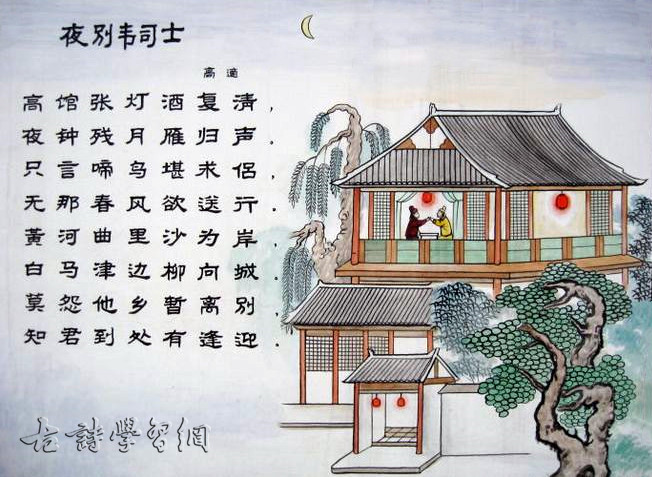 夜别韦司士
高適
高馆张灯酒复清，
夜钟残月雁归声．
只言啼鸟堪求侣，
无那春风欲送行．
黄河曲里沙为岸，
白马津边柳向城．
莫怨他乡暂离别，
知君到处有逢迎．
古詩學習網